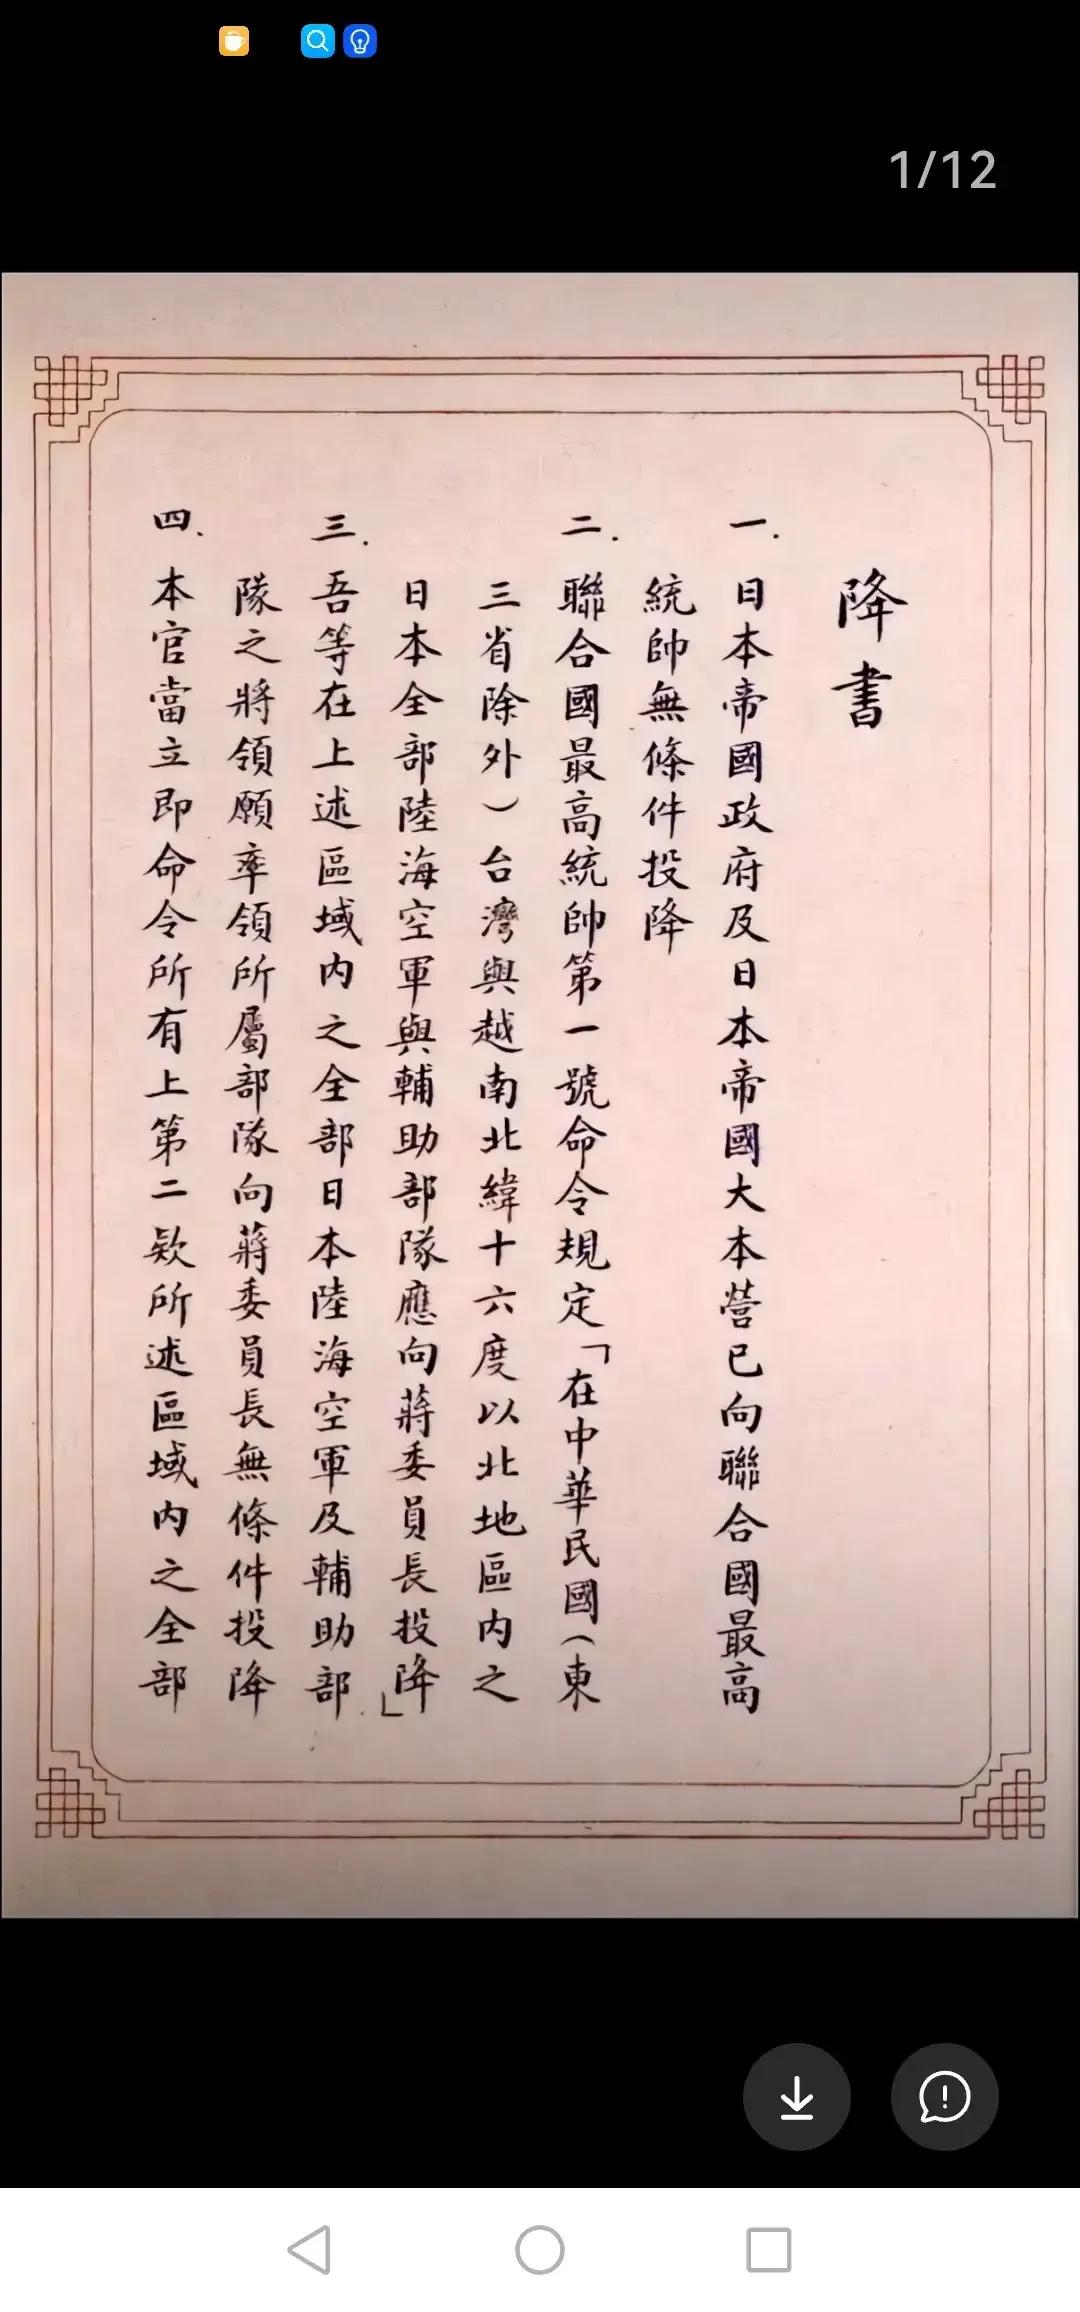 1/12
降書
一.日本帝國政府及日本帝國大本營已向聯合國最高
統帥無條件投降
二.聯合國最高統帥第一號命令規定「在中華民國(東
三省除外)台灣與越南北緯十六度以北地區内之
日本全部陸海空軍與輔助部隊應向蔣委員長投降」
三.吾等在上述區域内之全部日本陸海空軍及輔助部
隊之將領願率領所屬部隊向蔣委員長無條件投降
四.本官當立即命令所有上第二款所述區域内之全部